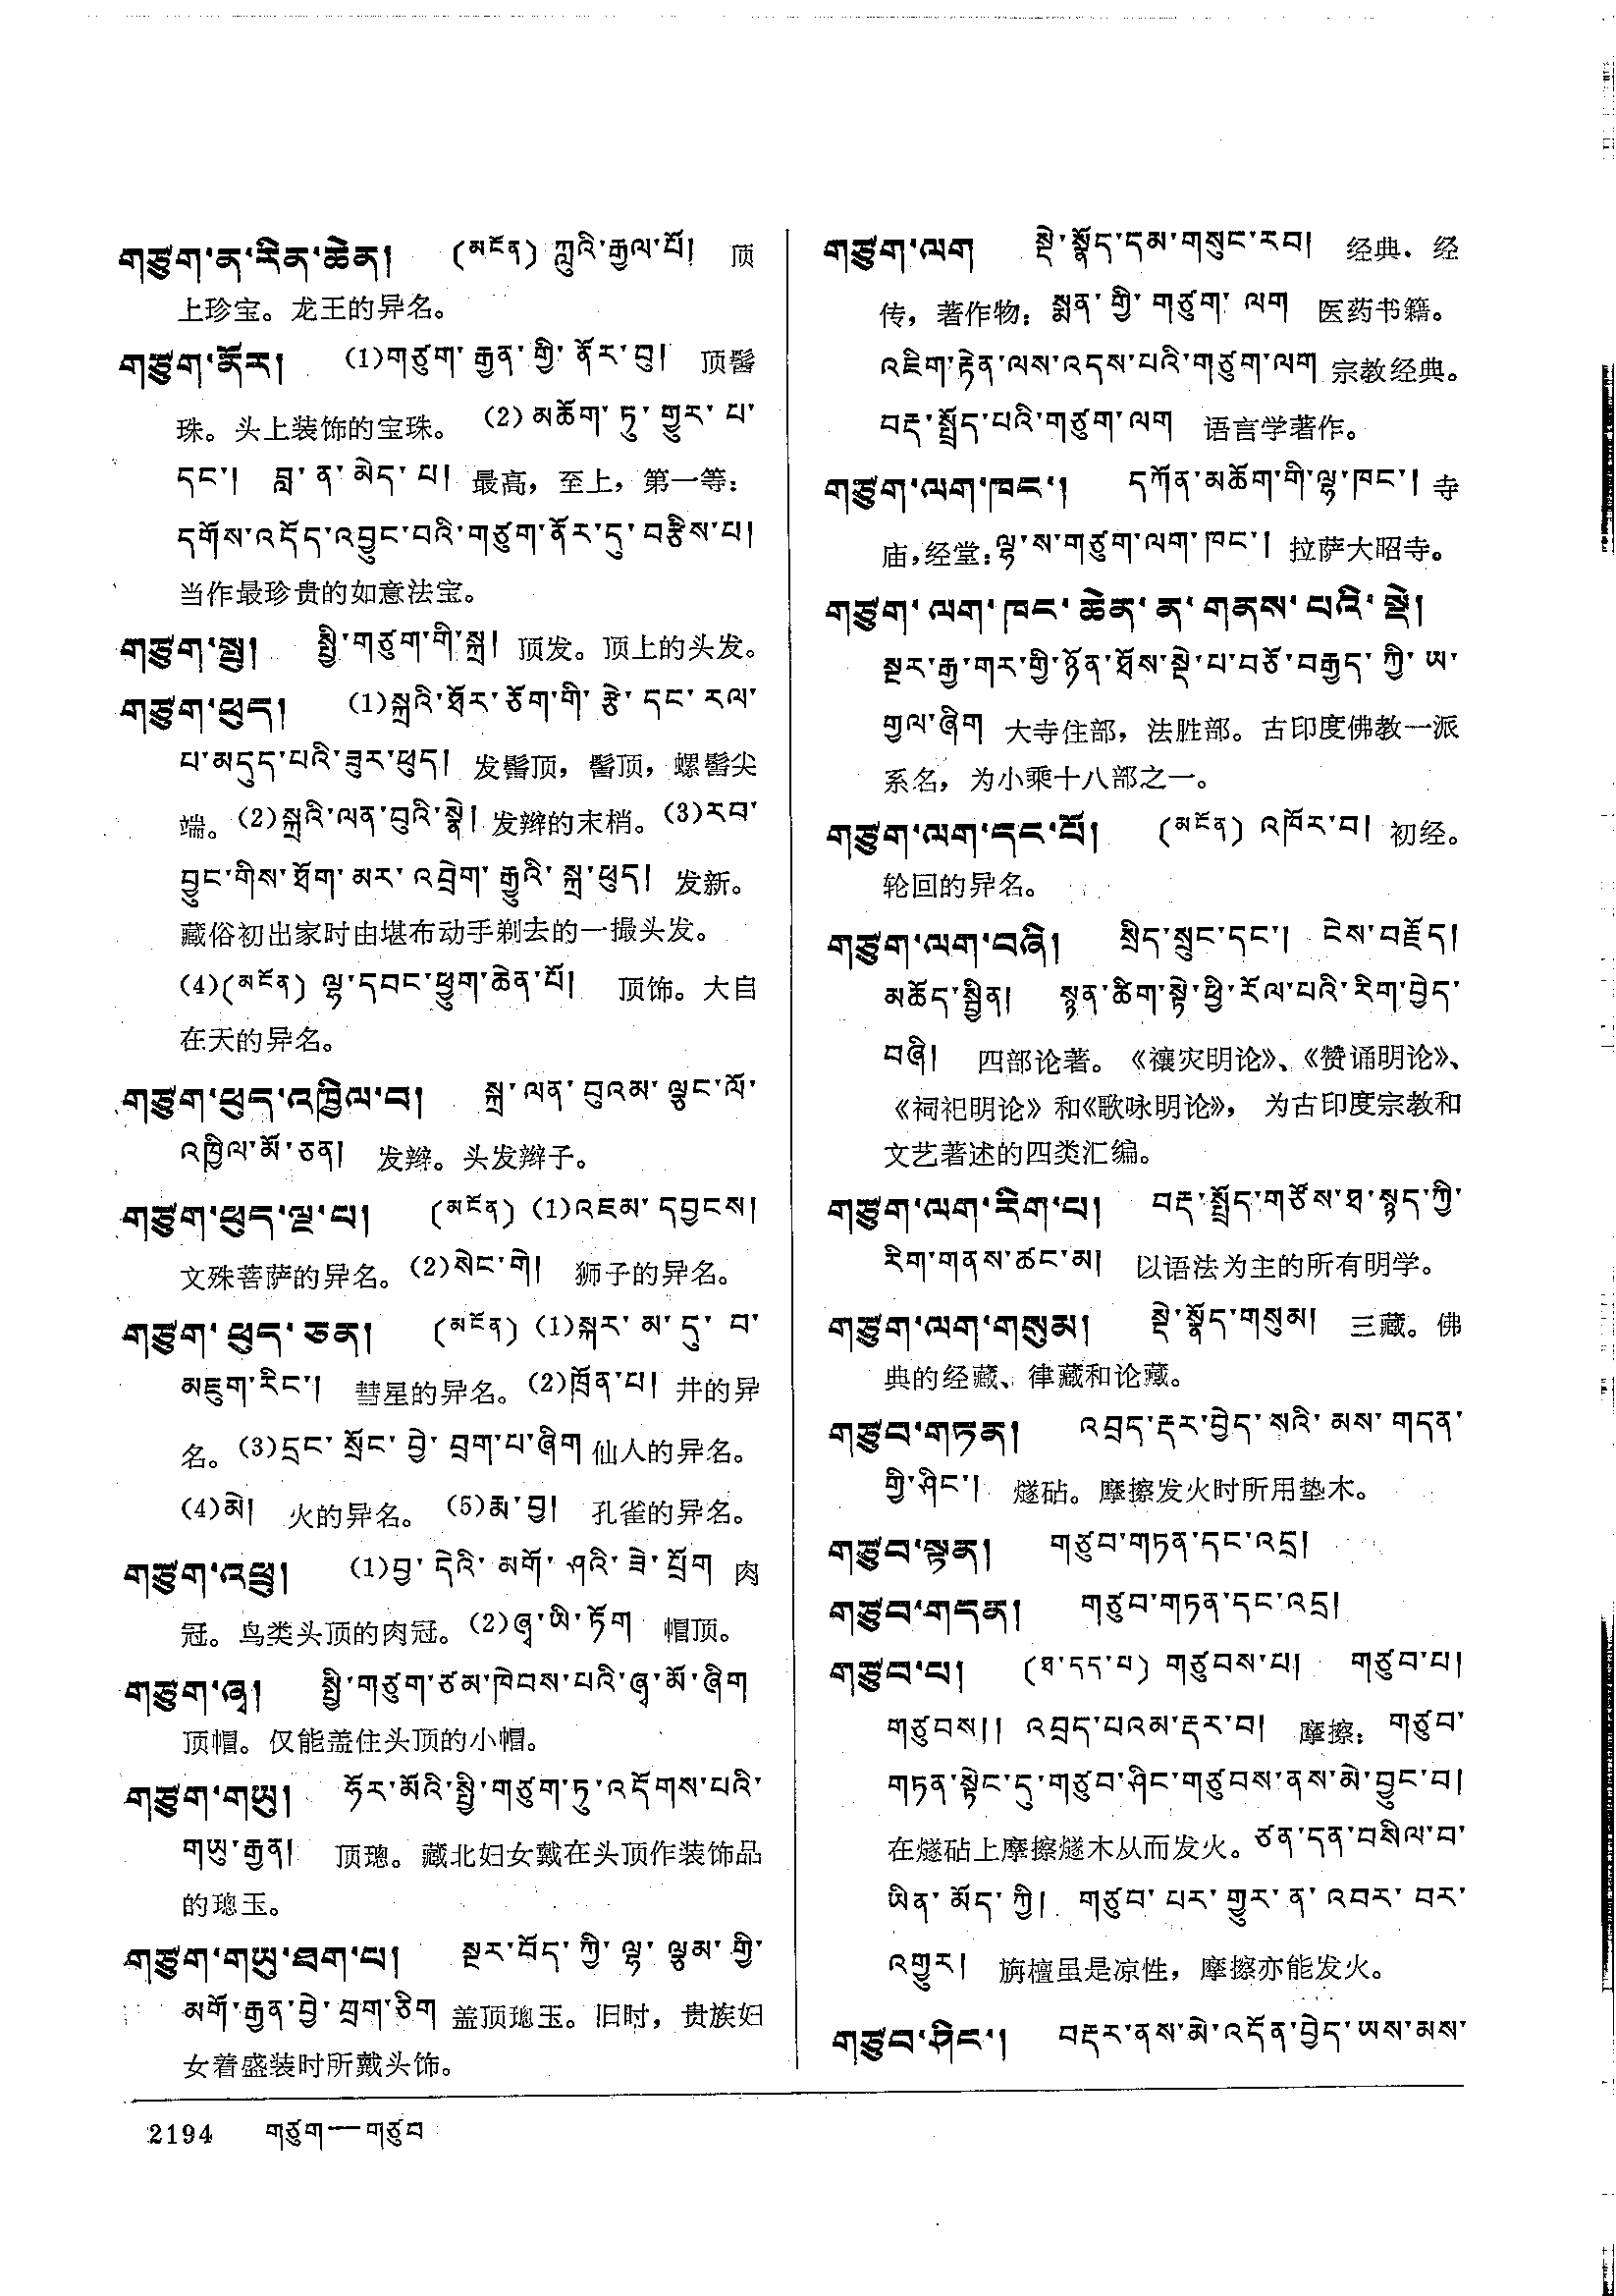 གཙུག་ན་རིན་ཆེན། (མངོན) ཀླུའི་རྒྱལ་པོ། 顶
上珍宝。龙王的异名。
གཙུག་ནོར། (1)གཙུག་ རྒྱན་ གྱི་ ནོར་ བུ། 顶髻
珠。头上装饰的宝珠。 (2) མཆོག་ ཏུ་ གྱུར་ པ་
དང་། བླ་ ན་ མེད་ པ། 最高，至上，第一等：
དགོས་འདོད་འབྱུང་བའི་གཙུག་ནོར་དུ་བརྩིས་པ།
当作最珍贵的如意法宝。
གཙུག་སྤུ། སྤྱི་གཙུག་གི་སྐྲ། 顶发。顶上的头发。
གཙུག་ཕུད། (1)སྐྲའི་ཐོར་ཅོག་གི་ རྩེ་ དང་ རལ་
པ་མདུད་པའི་ཟུར་ཕུད། 发髻顶，髻顶，螺髻尖
端。(2)སྐྲའི་ལན་བུའི་སྣེ། 发辫的末梢。(3)རབ་
བྱུང་གིས་ཐོག་མར་འབྲེག་རྒྱུའི་སྐྲ་ཕུད། 发新。
藏俗初出家时由堪布动手剃去的一撮头发。
(4)(མངོན) ལྷ་དབང་ཕྱུག་ཆེན་པོ། 顶饰。大自
在天的异名。
གཙུག་ཕུད་འཁྱིལ་བ། སྐྲ་ ལན་ བུའམ་ ལྕང་ལོ་
འཁྱིལ་མོ་ཅན། 发辫。头发辫子。
གཙུག་ཕུད་ལྔ་པ། (མངོན) (1)འཇམ་ དབྱངས།
文殊菩萨的异名。(2)སེང་གེ། 狮子的异名。
གཙུག་ ཕུད་ ཅན། (མངོན) (1)སྐར་ མ་ དུ་ བ་
མཇུག་རིང་། 彗星的异名。(2)ཁྲོན་པ། 井的异
名。(3)དྲང་ སྲོང་ བྱེ་ བྲག་པ་ཞིག 仙人的异名。
(4)མེ། 火的异名。 (5)རྨ་བྱ། 孔雀的异名。
གཙུག་འཕྲུ། (1)བྱ་ དེའི་ མགོ་ ཤའི་ ཟེ་ པྲོག 肉
冠。鸟类头顶的肉冠。(2)ཞྭ་ཡི་ཏོག 帽顶。
གཙུག་ཞྭ། སྤྱི་གཙུག་ཙམ་ཁེབས་པའི་ཞྭ་མོ་ཞིག
顶帽。仅能盖住头顶的小帽。
གཙུག་གཡུ། ཧོར་མོའི་སྤྱི་གཙུག་ཏུ་འདོགས་པའི་
གཡུ་རྒྱན། 顶璁。藏北妇女戴在头顶作装饰品
的璁玉。
གཙུག་གཡུ་ཐག་པ། སྔར་བོད་ ཀྱི་ ལྷ་ ལྕམ་ གྱི་
མགོ་རྒྱན་བྱེ་བྲག་ཅིག 盖顶璁玉。旧时，贵族妇
女着盛装时所戴头饰。
གཙུག་ལག སྡེ་སྣོད་དམ་གསུང་རབ། 经典．经
传，著作物：སྨན་ གྱི་ གཙུག་ ལག 医药书籍。
འཇིག་རྟེན་ལས་འདས་པའི་གཙུག་ལག 宗教经典。
བརྡ་སྤྲོད་པའི་གཙུག་ལག 语言学著作。
གཙུག་ལག་ཁང་། དཀོན་མཆོག་གི་ལྷ་ཁང་། 寺
庙，经堂：ལྷ་ས་གཙུག་ལག་ཁང་། 拉萨大昭寺。
གཙུག་ ལག་ ཁང་ ཆེན་ ན་ གནས་ པའི་ སྡེ།
སྔར་རྒྱ་གར་གྱི་ཉོན་ཐོས་སྡེ་པ་བཅོ་བརྒྱད་ ཀྱི་ ཡ་
གྱལ་ཞིག 大寺住部，法胜部。古印度佛教一派
系名，为小乘十八部之一。
གཙུག་ལག་དང་པོ། (མངོན) འཁོར་བ། 初经。
轮回的异名。
གཙུག་ལག་བཞི། སྲིད་སྲུང་དང་། ངེས་བརྗོད།
མཆོད་སྦྱིན། སྙན་ཚིག་སྟེ་ཕྱི་རོལ་པའི་རིག་བྱེད་
བཞི། 四部论著。《禳灾明论》、《赞诵明论》、
《祠祀明论》和《歌咏明论》，为古印度宗教和
文艺著述的四类汇编。
གཙུག་ལག་རིག་པ། བརྡ་སྤྲོད་གཙོས་ཐ་སྙད་ཀྱི་
རིག་གནས་ཚང་མ། 以语法为主的所有明学。
གཙུག་ལག་གསུམ། སྡེ་སྣོད་གསུམ། 三藏。佛
典的经藏、律藏和论藏。
གཙུབ་གཏན། འབྲད་རྡར་བྱེད་སའི་ མས་ གདན་
གྱི་ཤིང་། 燧砧。摩擦发火时所用垫木。
གཙུབ་སྟན། གཙུབ་གཏན་དང་འདྲ།
གཙུབ་གདན། གཙུབ་གཏན་དང་འདྲ།
གཙུབ་པ། (ཐ་དད་པ) གཙུབས་པ། གཙུབ་པ།
གཙུབས།། འབྲད་པའམ་རྡར་བ། 摩擦：གཙུབ་
གཏན་སྟེང་དུ་གཙུབ་ཤིང་གཙུབས་ནས་མེ་བྱུང་བ།
在燧砧上摩擦燧木从而发火。ཙན་དན་བསིལ་བ་
ཡིན་ མོད་ ཀྱི། གཙུབ་ པར་ གྱུར་ ན་ འབར་ བར་
འགྱུར། 旃檀虽是凉性，摩擦亦能发火。
གཙུབ་ཤིང་། བརྡར་ནས་མེ་འདོན་བྱེད་ཡས་མས་
2194 གཙུག—གཙུབ